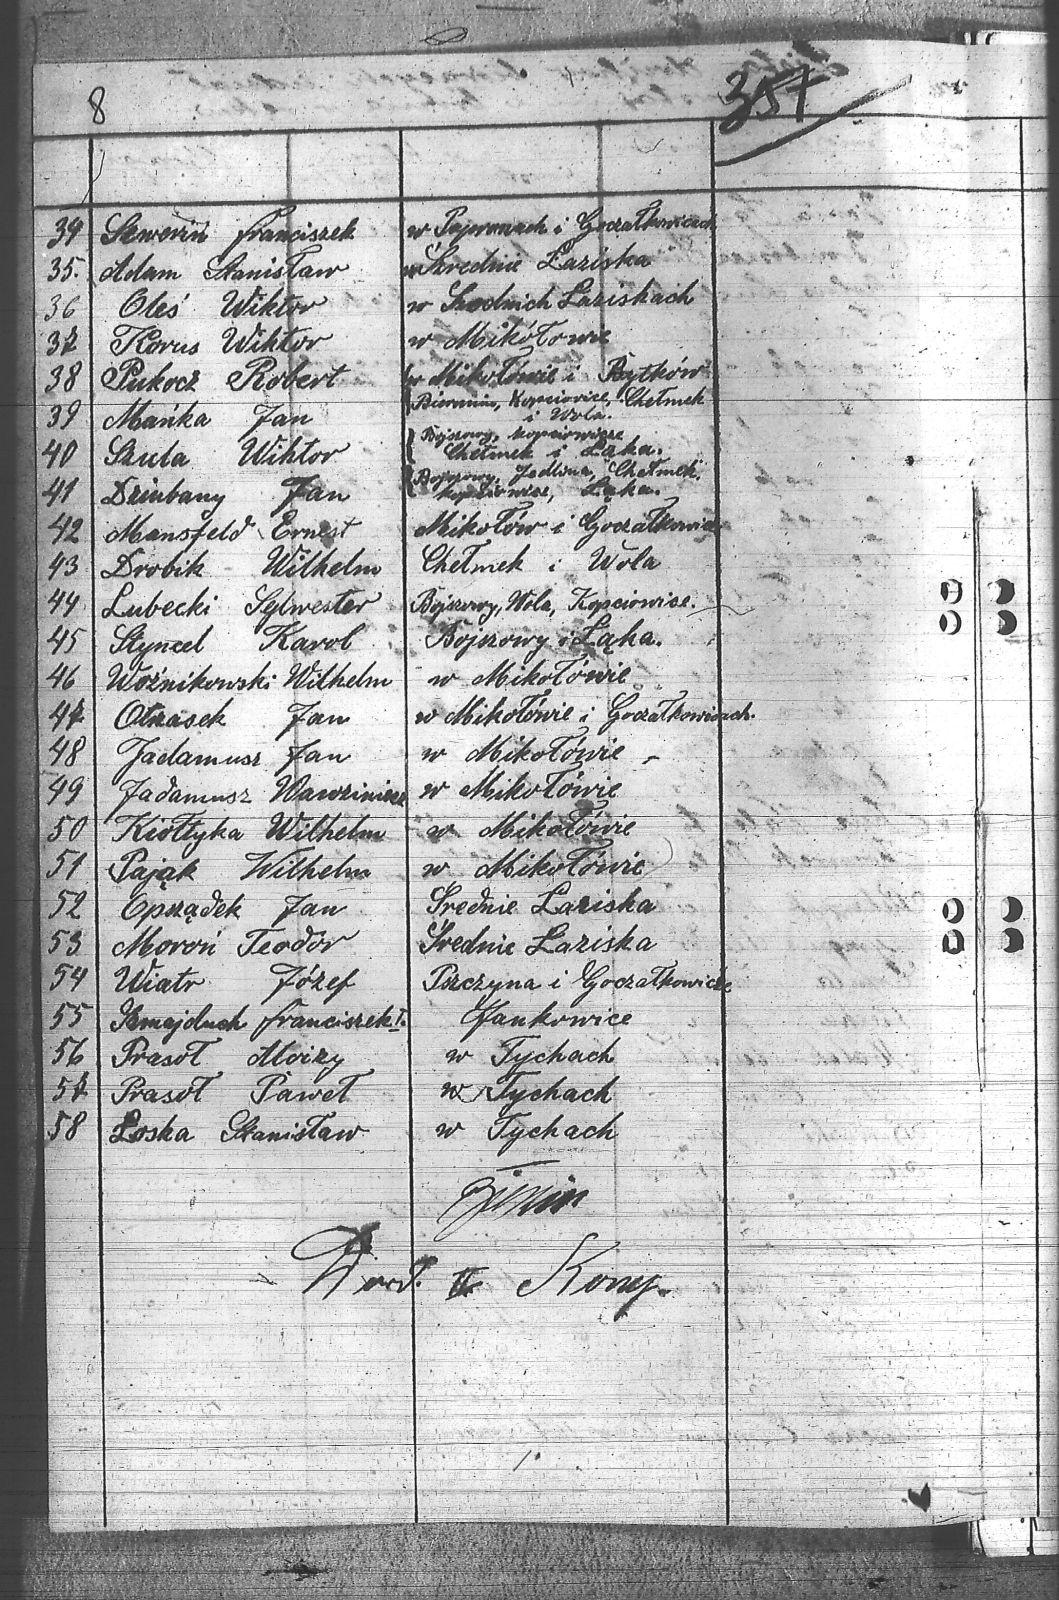 8
357
34 Szweriń Franciszek w Pajwonach i Goczałkowicach
35. Adam Stanisław w Szrednie Laziska
36 Oleś Wiktor w Szednich Laziskach
37 Korus Wiktor w Mikołowie
38 Pukocz Robert w Mikołówie i Bytków
39 Mańka Jan Bierunin, Kopciowice, Chełmek
i Wola.
40 Szula Wiktor Bojszowy, Kopciowicze
Chełmek i Łąka.
41 Dziubany Jan Bojszowy, Jedlina, Chełmek,
Kopciowice, Łąka.
42 Mansfeld Ernest Mikołów i Goczałkowice
43 Drobik Wilhelm Chełmek i Wola
44 Lubecki Sylwester Bojszowy, Wola, Kopciowice.
45 Styncel Karol Bojszowy i Łąka.
46 Woźnikowski Wilhelm w Mikołówie
47 Otrasek Jan w Mikołówie i Goczałkowicach.
48 Jadamusz Jan w Mikołówie
49 Jadamusz Wawziniec w Mikołówie
50 Kiołtyka Wilhelm w Mikołówie
51 Pająk Wilhelm w Mikołówie
52 Oprządek Jan Średnie Laziska
53 Moroń Teodor Średnie Laziska
54 Wiatr Józef Pszczyna i Goczałkowicze
55 Szmajduch Franciszek I. Jankowice
56 Prasoł Aloizy w Tychach
57 Prasoł Paweł w Tychach
58 Loska Stanisław w Tychach
Dowd. II Komp.